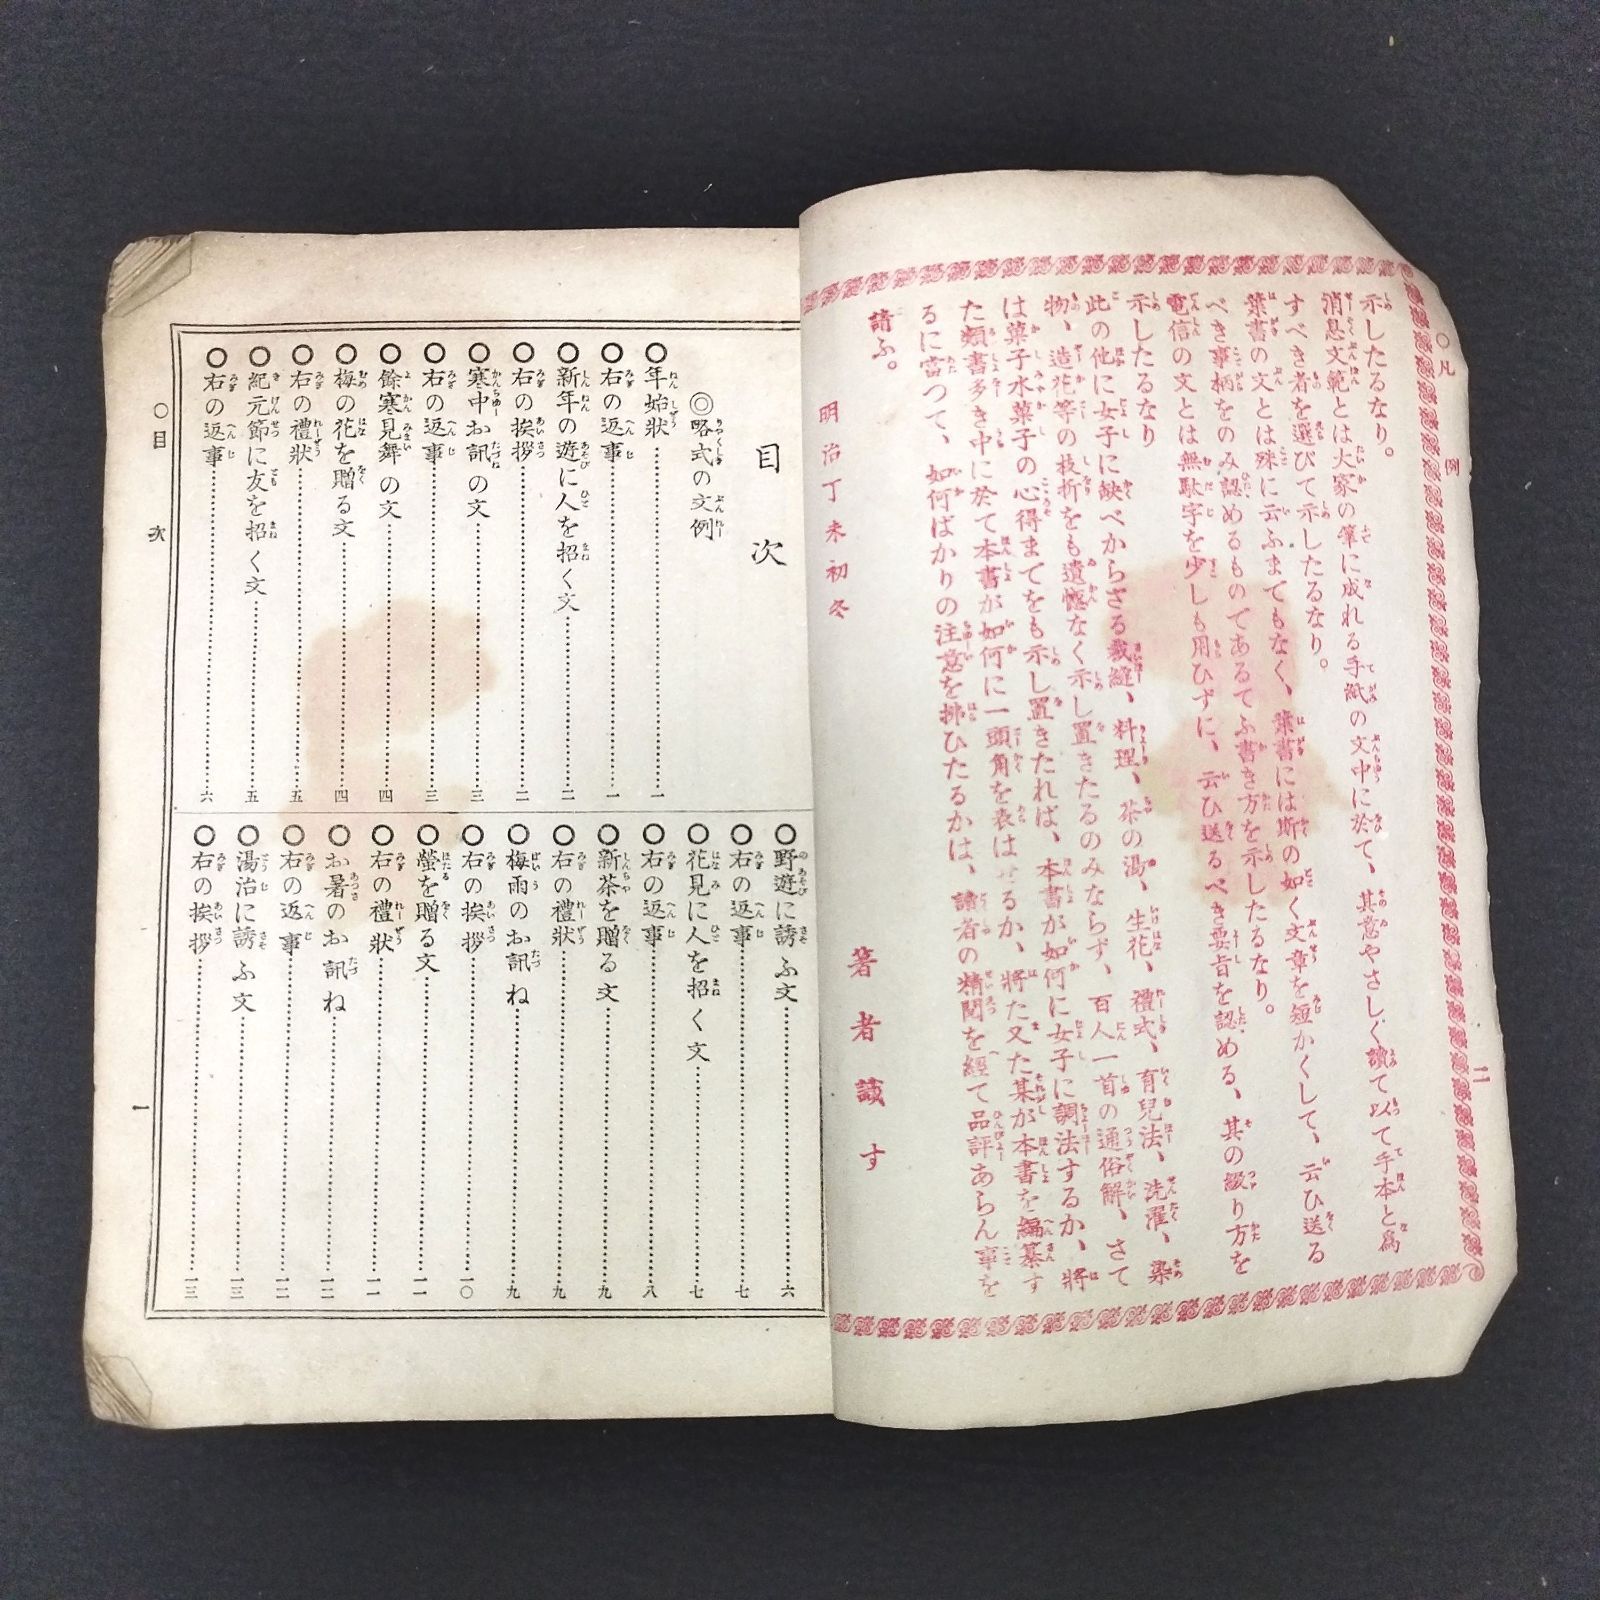 ○凡例
二
示したるなり。
消息文範とは大家の筆に成れる手紙の文中に於て、其意やさしく讀て以て手本と爲
すべき者を選びて示したるなり。
葉書の文とは殊に云ふまでもなく、葉書には斯の如く文章を短かくして、云ひ送る
べき事柄をのみ認めるものであるてふ書き方を示したるなり。
電信の文とは無駄字を少しも用ひずに、云ひ送るべき要旨を認める、其の綴り方を
示したるなり
此の他に女子に缺べからざる裁縫、料理、茶の湯、生花、禮式、育兒法、洗濯、染
物、造花等の枝折をも遺憾なく示し置きたるのみならず、百人一首の通俗解、さて
は菓子水菓子の心得までをも示し置きたれば、本書が如何に女子に調法するか、將
た類書多き中に於て本書が如何に一頭角を表はせるか、將た又た某が本書を編纂す
るに當つて、如何ばかりの注意を拂ひたるかは、讀者の精閲を經て品評あらん事を
請ふ。
明治丁未初冬
著者識す
目次
◎略式の文例
○年始狀 一
○右の返事 一
○新年の遊に人を招く文 二
○右の挨拶 二
○寒中お訊の文 三
○右の返事 三
○餘寒見舞の文 四
○梅の花を贈る文 四
○右の禮狀 五
○紀元節に友を招く文 五
○右の返事 六
○野遊に誘ふ文 六
○右の返事 七
○花見に人を招く文 七
○右の返事 八
○新茶を贈る文 九
○右の禮狀 九
○梅雨のお訊ね 九
○右の挨拶 一〇
○螢を贈る文 一一
○右の禮狀 一一
○お暑のお訊ね 一二
○右の返事 一二
○湯治に誘ふ文 一三
○右の挨拶 一三
○目次
一